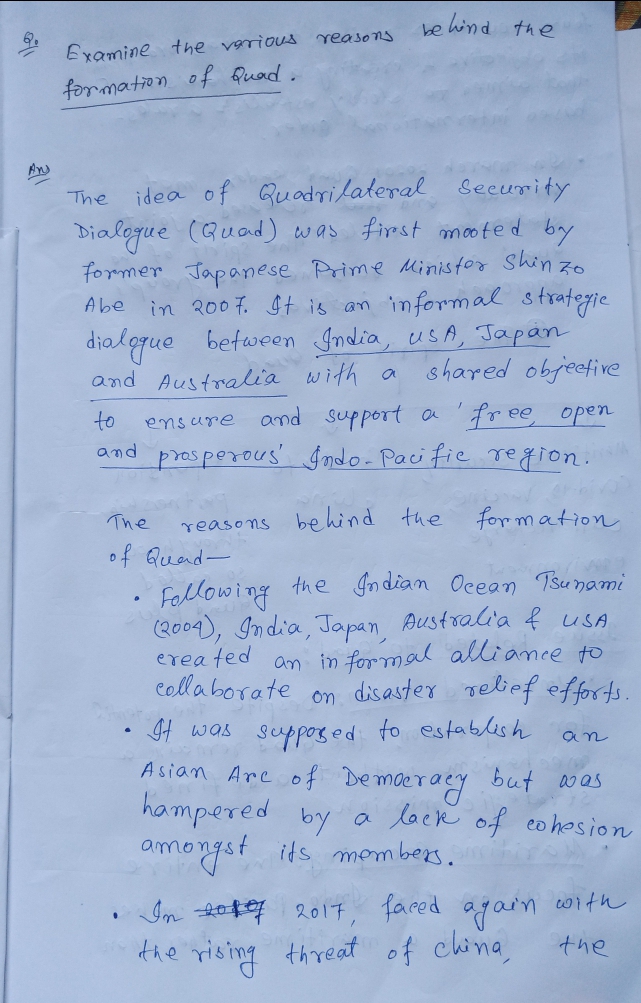 Q. Examine the various reasons behind the
formation of Quad.
Ans
The idea of Quadrilateral Security
Dialogue (Quad) was first mooted by
former Japanese Prime Minister Shinzo
Abe in 2007. It is an informal strategic
dialogue between India, USA, Japan
and Australia with a shared objective
to ensure and support a 'free, open
and prosperous' Indo-Pacific region.
The reasons behind the formation
of Quad—
• Following the Indian Ocean Tsunami
(2004), India, Japan, Australia & USA
created an informal alliance to
collaborate on disaster relief efforts.
• It was supposed to establish an
Asian Arc of Democracy but was
hampered by a lack of cohesion
amongst its members.
• In 2017, faced again with
the rising threat of China, the